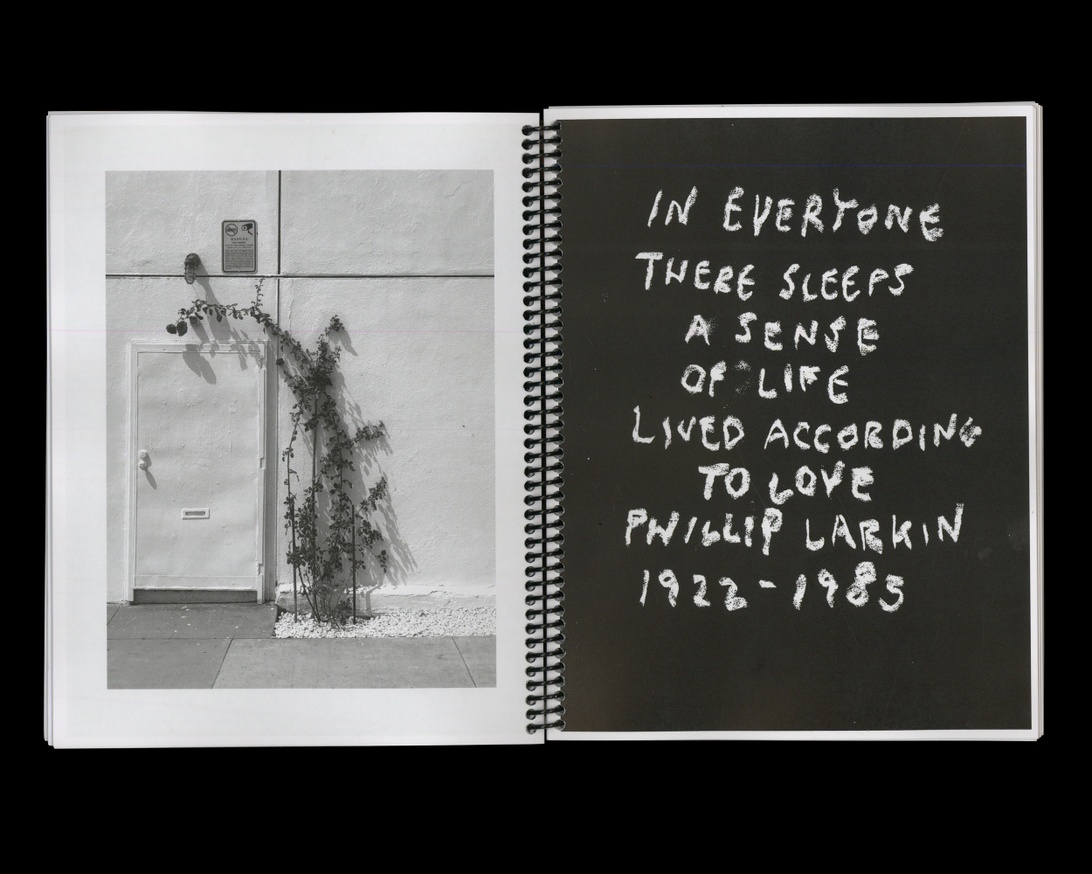 IN EVERYONE
THERE SLEEPS
A SENSE
OF LIFE
LIVED ACCORDING
TO LOVE
PHILLIP LARKIN
1922-1985